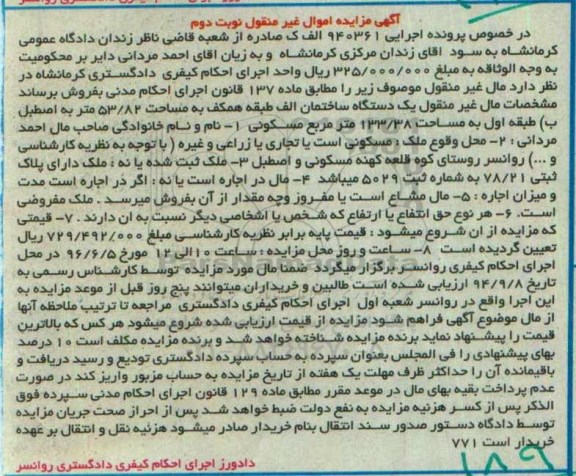 آگهی مزایده اموال غیر منقول نوبت دوم
در خصوص پرونده اجرایی ۹۴۰۳۶۱ الف ک صادره از شعبه قاضی ناظر زندان دادگاه عمومی
کرمانشاه به سود اقای زندان مرکزی کرمانشاه و به زیان اقای احمد مردانی دایر بر محکومیت
به وجه الوثاقه به مبلغ ۳۲۵/۰۰۰/۰۰۰ ریال واحد اجرای احکام کیفری دادگستری کرمانشاه در
نظر دارد مال غیر منقول موصوف زیر را مطابق ماده ۱۳۷ قانون اجرای احکام مدنی بفروش برساند
مشخصات مال غیر منقول یک دستگاه ساختمان الف طبقه همکف به مساحت ۵۳/۸۲ متر به اصطبل
ب) طبقه اول به مساحت ۱۳۳/۳۸ متر مربع مسکونی ۱- نام و نام خانوادگی صاحب مال احمد
مردانی : ۲- محل وقوع ملک : مسکونی است یا تجاری یا زراعی و غیره ( با توجه به نظریه کارشناسی
و ...) روانسر روستای کوه قلعه کهنه مسکونی و اصطبل ۳- ملک ثبت شده یا نه : ملک دارای پلاک
ثبتی ۷۸/۲۱ به شماره ثبت ۵۰۲۹ میباشد ۴- مال در اجاره است یا نه : اگر در اجاره است مدت
و میزان اجاره : ۵- مال مشاع است یا مفروز وچه مقدار از آن بفروش میرسد . ملک مفروضی
است. ۶- هر نوع حق انتفاع یا ارتفاع که شخص یا اشخاصی دیگر نسبت به ان دارند . ۷- قیمتی
که مزایده از ان شروع میشود : قیمت پایه برابر نظریه کارشناسی مبلغ ۷۲۹/۴۹۲/۰۰۰ ریال
تعیین گردیده است ۸- ساعت و روز محل مزایده : ساعت ۱۰ الی ۱۲ مورخ ۹۶/۶/۵ در محل
اجرای احکام کیفری روانسر برگزار میگردد ضمنا مال مورد مزایده توسط کارشناس رسمی به
تاریخ ۹۴/۹/۸ ارزیابی شده است طالبین و خریداران میتوانند پنج روز قبل از موعد مزایده به
این اجرا واقع در روانسر شعبه اول اجرای احکام کیفری دادگستری مراجعه تا ترتیب ملاحظه آنها
از مال موضوع آگهی فراهم شود مزایده از قیمت ارزیابی شده شروع میشود هر کس که بالاترین
قیمت را پیشنهاد نماید برنده مزایده شناخته خواهد شد و برنده مزایده مکلف است ۱۰ درصد
بهای پیشنهادی را فی المجلس بعنوان سپرده به حساب سپرده دادگستری تودیع و رسید دریافت و
باقیمانده آن را حداکثر ظرف مهلت یک هفته از تاریخ مزایده به حساب مزبور واریز کند در صورت
عدم پرداخت بقیه بهای مال در موعد مقرر مطابق ماده ۱۲۹ قانون اجرای احکام مدنی سپرده فوق
الذکر پس از کسر هزنیه مزایده به نفع دولت ضبط خواهد شد پس از احراز صحت جریان مزایده
توسط دادگاه دستور صدور سند انتقال بنام خریدار صادر میشود هزئیه نقل و انتقال بر عهده
خریدار است ۷۷۱
دادورز اجرای احکام کیفری دادگستری روانسر
۱۸۹